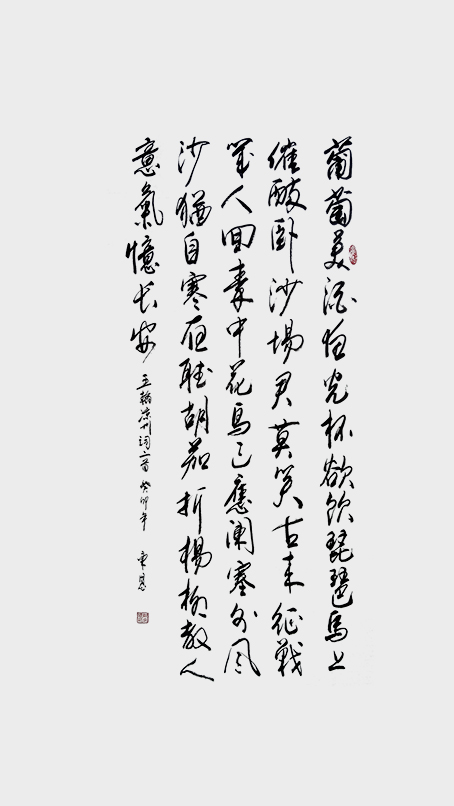 葡萄美酒夜光杯欲饮琵琶馬上
催醉卧沙場君莫笑古来征戰
幾人回秦中花鳥已應闌塞外風
沙猶自寒夜聴胡笳折楊柳教人
意氣憶长安 王翰凉州词二首 癸卯年